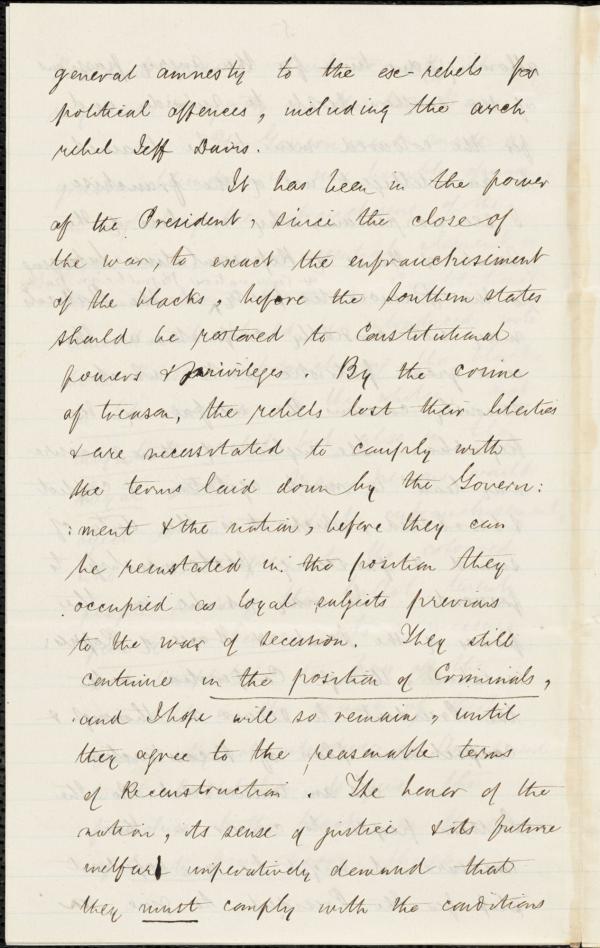 general amnesty to the ex-rebels for
political offences, including the arch
rebel Jeff Davis.
It has been in the power
of the President, since the close of
the war, to exact the enfranchisement
of the blacks, before the Southern states
should be restored to Constitutional
powers & privileges. By the crime
of treason, the rebels lost their liberties
& are necessitated to comply with
the terms laid down by the Govern:
:ment & the nation, before they can
be reinstated in the position they
occupied as loyal subjects previous
to the war of secession. They still
continue in the position of Criminals,
and I hope will so remain, until
they agree to the reasonable terms
of Reconstruction. The honor of the
nation, its sense of justice & its future
welfare imperatively demand that
they must comply with the conditions